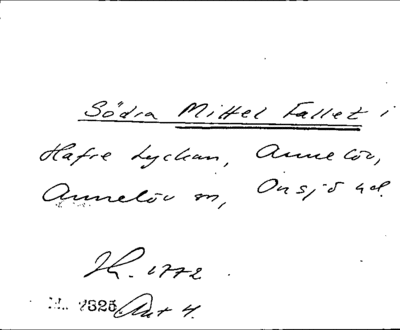 Södra Mittel Fallet i
Hafre Lyckan, Annelöv,
Annelöv sn, Onsjö hd.
1772
Akt 4.